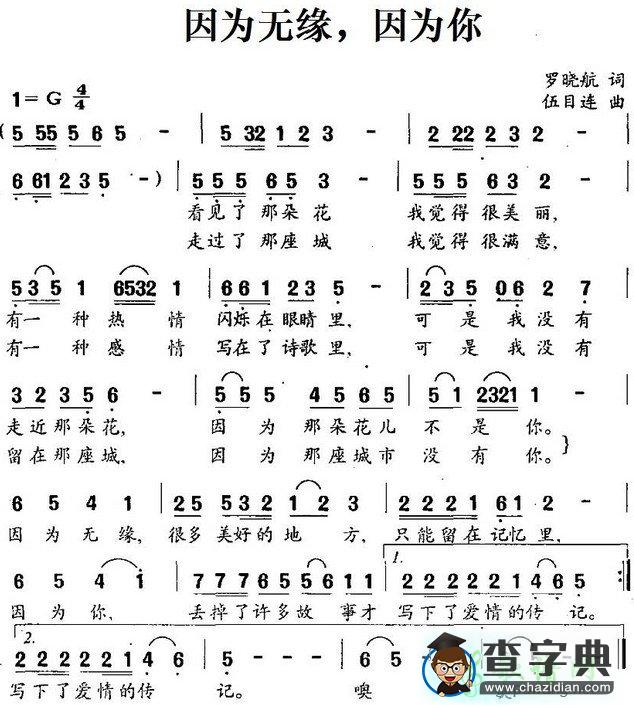 因为无缘，因为你
1= G 4/4
罗晓航 词
伍目连 曲
( 5 55 5 6 5 - | 5 32 1 2 3 - | 2 22 2 3 2 - |
6 61 2 3 5 - ) | 5 5 5 6 5 3 - | 5 5 5 6 3 2 - |
看见了那朵花 我觉得很美丽,
走过了那座城 我觉得很满意,
5 3 5 1 6532 1 | 6 6 1 2 3 5 - | 2 3 5 0 6 2 7 |
有一种热情 闪烁在眼睛里, 可是我没有
有一种感情 写在了诗歌里, 可是我没有
3 2 3 5 6 - | 5 5 5 4 5 6 5 | 5 1 2321 1 - |
走近那朵花, 因为那朵花儿不是你。
留在那座城, 因为那座城市没有你。}
6 5 4 1 | 2 5 5 3 2 1 2 3 | 2 2 2 1 6 1 2 - |
因为无缘, 很多美好的地方, 只能留在记忆里,
1.
6 5 4 1 | 7 7 7 6 5 5 6 1 1 | 2 2 2 2 2 1 4 6 5 :||
因为你, 丢掉了许多故事才 写下了爱情的传记。
2.
2 2 2 2 2 1 6 4 6 | 5 - - - |
写下了爱情的传记。 噢
查字典
www.chazidian.com